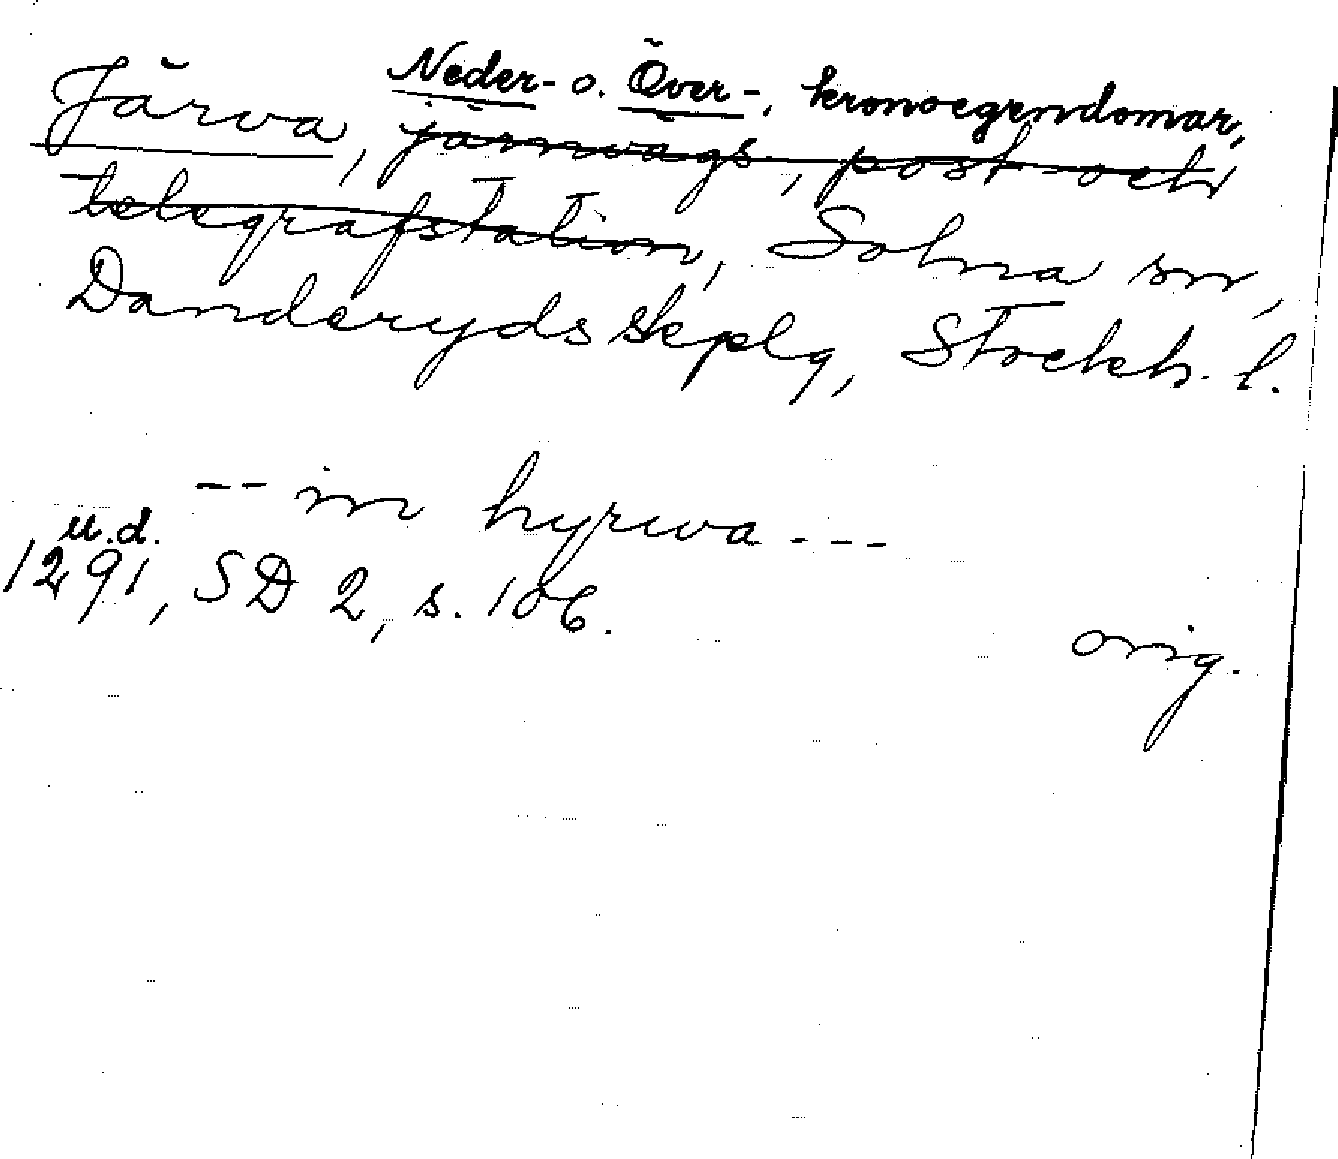 Neder- o. Över-, kronoegendomar,
Järva, järnvägs, post och
telegrafstation, Solna sn,
Danderyds skplg, Stockh. l.
-- in hyrwa ---
u.d.
1291, SD 2, s. 106.
orig.